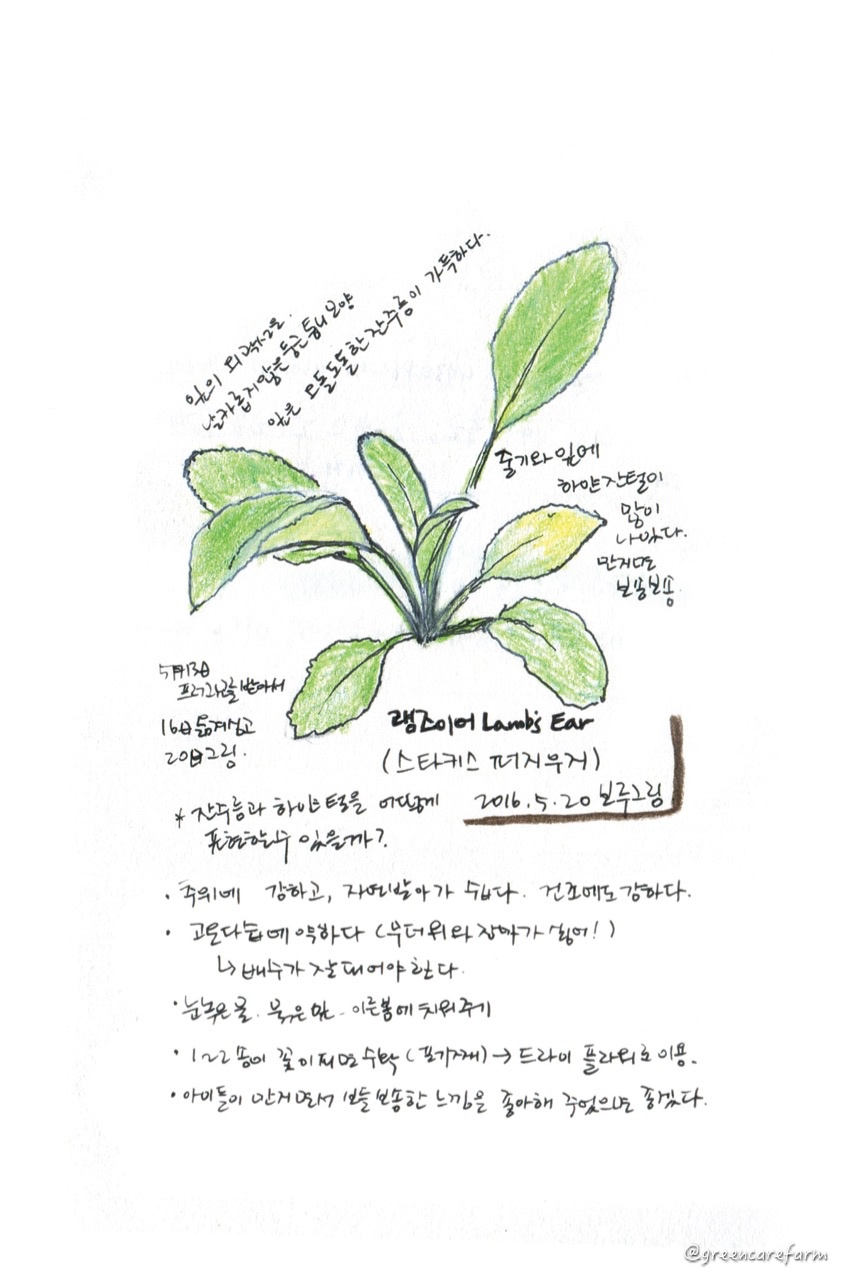 잎의 외곽선은
날카롭지않은 둥근톱니모양
잎은 오돌도돌한 잔주름이 가득하다.
줄기와 잎에
하얀잔털이
많이
나있다.
만지면
보송보송
5月13日
받아서
16日 옮겨심고
20日그림.
램즈이어 Lamb's Ear
(스타키스 퍼지우거)
2016.5.20 보루그림
* 잔주름과 하얀털을 어떻게
표현할수 있을까?
· 추위에 강하고, 자연발아가 쉽다. 건조에도강하다.
· 고온다습에 약하다 (무더위와 장마가 싫어!)
↳ 배수가 잘되어야 한다.
· 눈녹은물. 묵은잎 - 이른봄에 치워주기
· 1~2송이 꽃이피면 수확 (포기째) → 드라이 플라워로 이용.
· 아이들이 만지면서 보들보송한 느낌을 좋아해 주었으면 좋겠다.
@greencarefarm